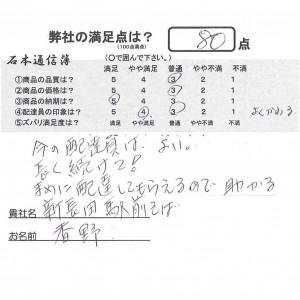 弊社の満足点は？ 80 点
(100点満点)
石本通信簿 (○で囲んで下さい。)
満足 やや満足 普通 やや不満 不満
①商品の品質は？ 5 4 3 2 1
②商品の価格は？ 5 4 3 2 1
③商品の納期は？ 5 4 3 2 1
④配達員の印象は？ 5 4 3 2 1 よくかわる
⑤ズバリ満足度は？ 満足 やや満足 普通 やや不満 不満
今の配達員は、よい。
長く続けて！
まめに配達してもらえるので助かる
貴社名 新長田駅前そば
お名前 香野